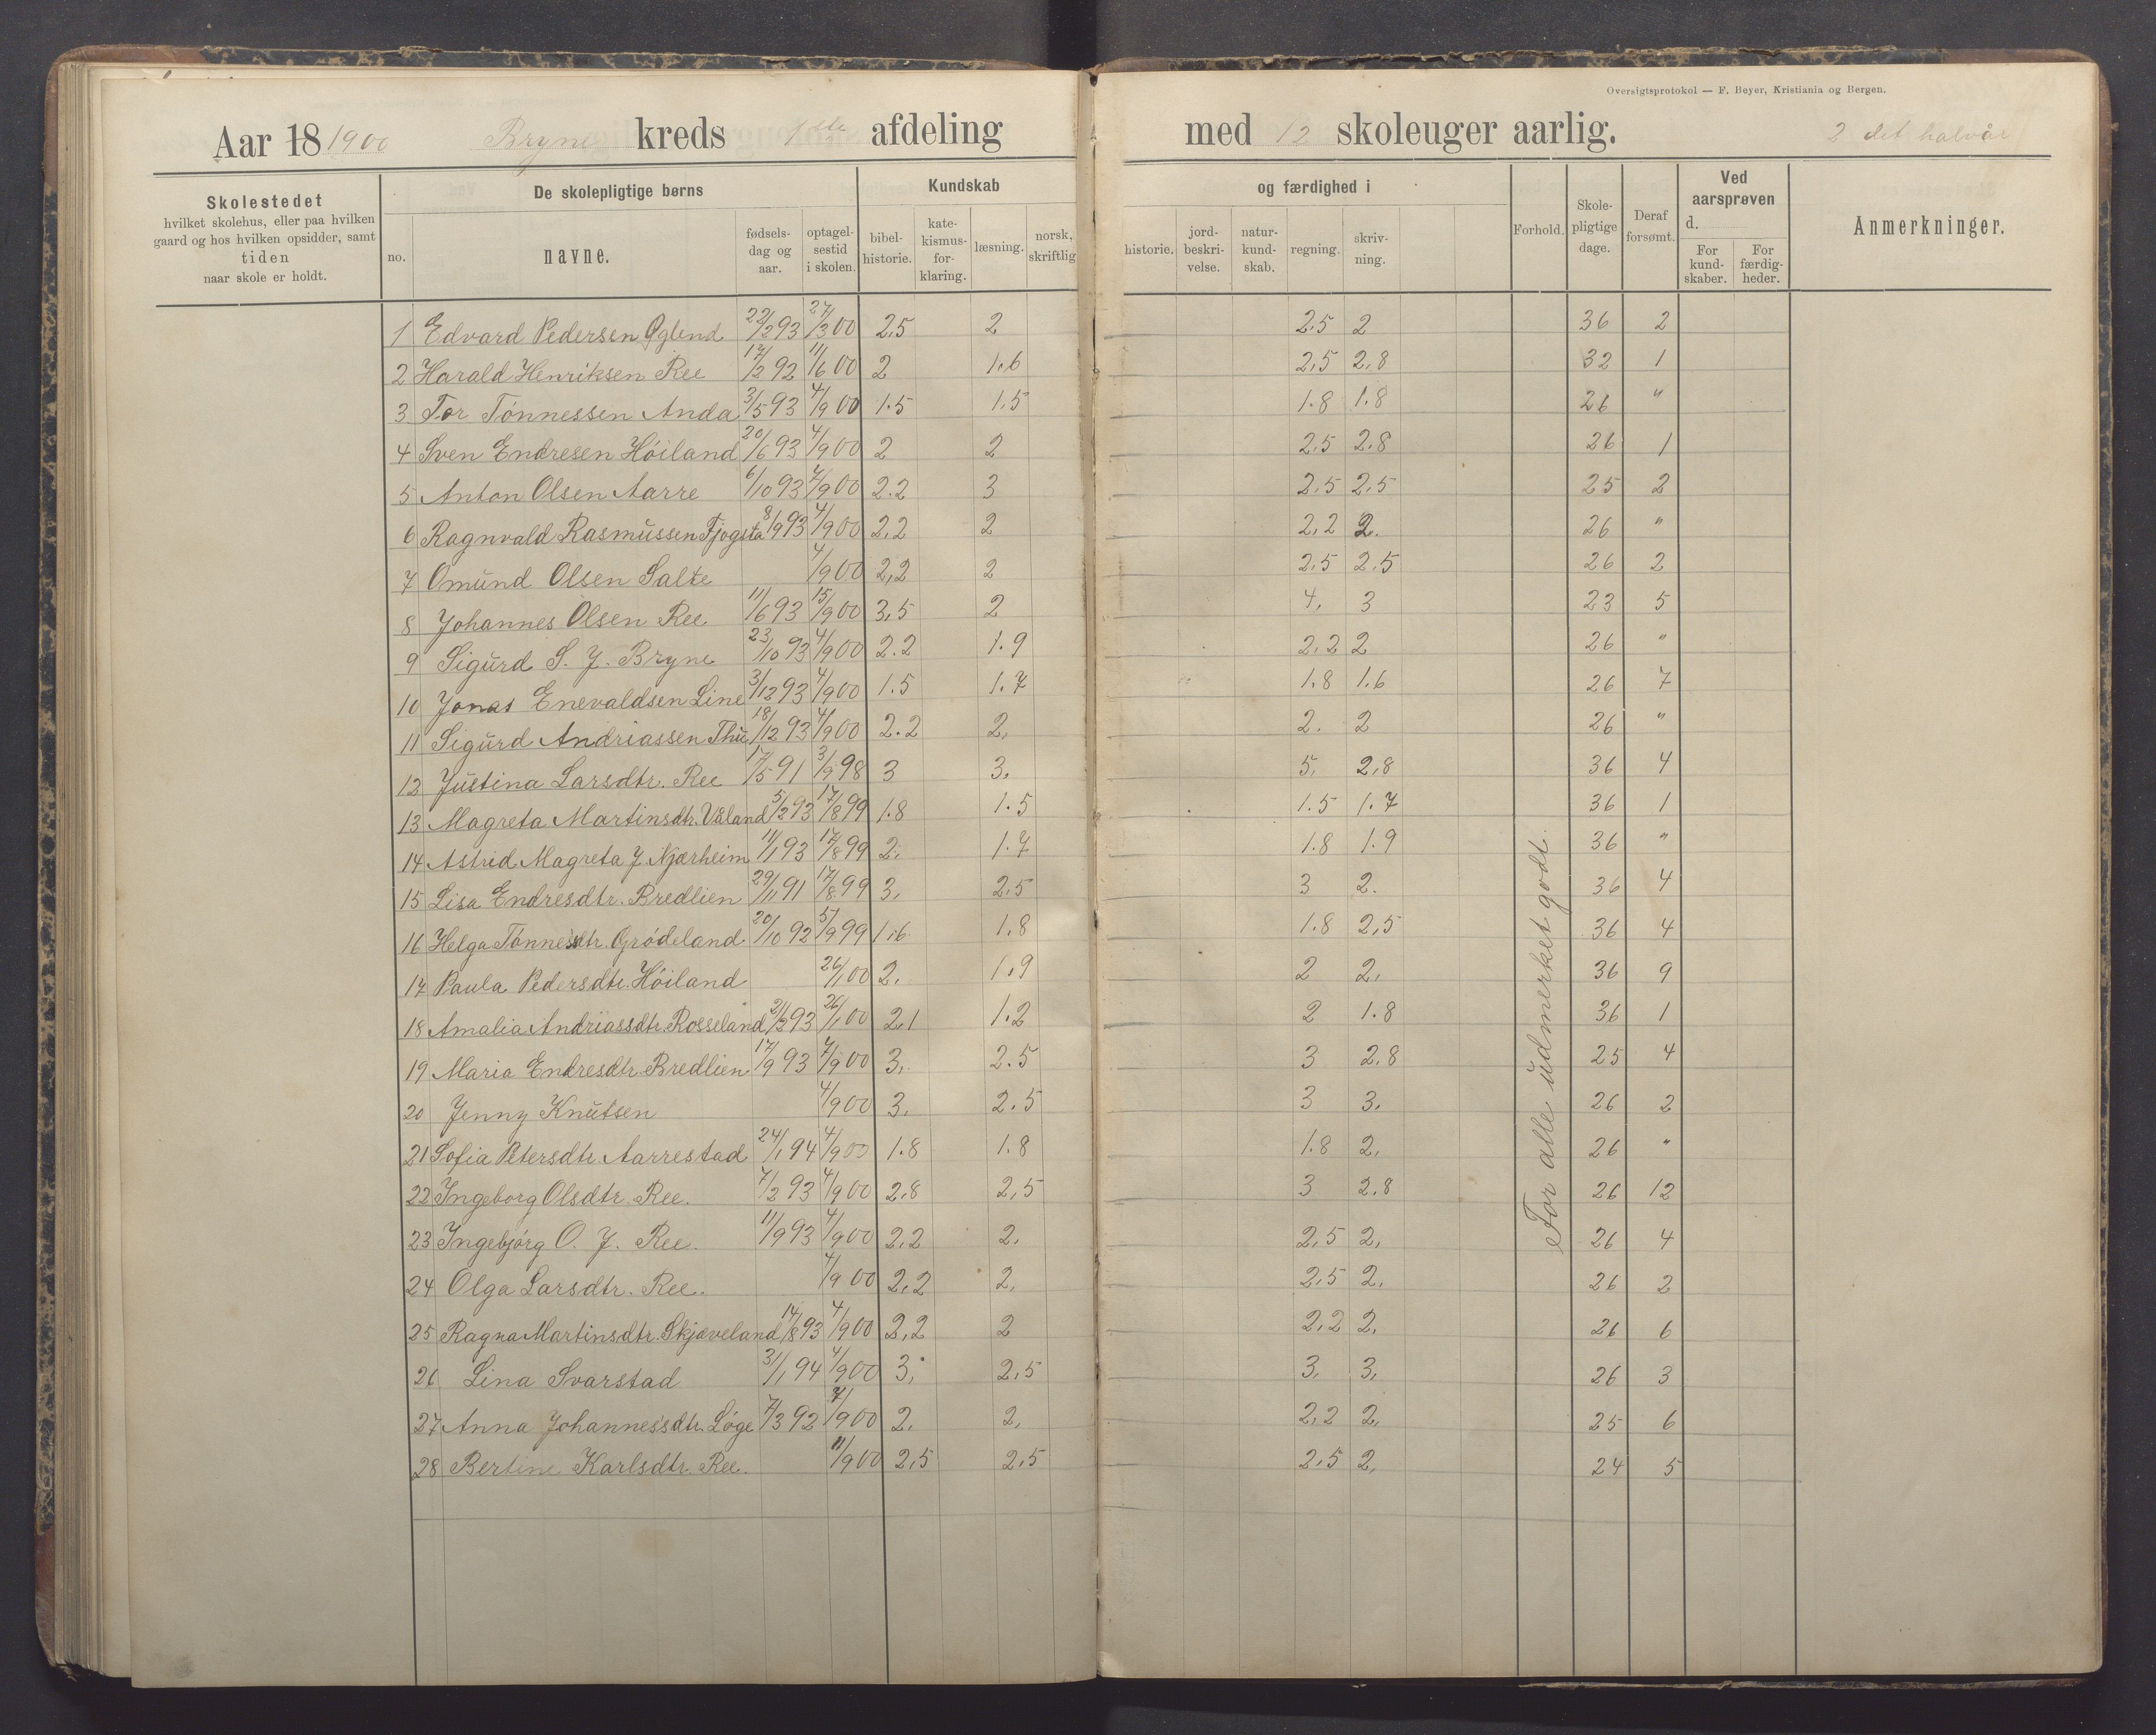 Oversigtsprotokol — F. Beyer, Kristiania og Bergen.
Aar 18 1900 Bryne kreds 1ste afdeling med 12 skoleuger aarlig. 2 det halvår
Skolestedet hvilket skolehus, eller paa hvilken gaard og hos hvilken opsidder, samt tiden naar skole er holdt.
De skolepligtige børns
no. navne. fødsels-dag og aar. optagel-sestid i skolen.
Kundskab og færdighed i
bibel-historie. kate-kismus-for-klaring. læsning. norsk, skriftlig historie. jord-beskri-velse. natur-kund-skab. regning. skriv-ning.
Forhold. Skole-pligtige dage. Deraf forsømt. Ved aarsprøven d. For kund-skaber. For færdig-heder. Anmerkninger.
1 Edvard Pedersen Øglend 22/2 93 27/3 00 2,5 2 2.5 2 36 2
2 Harald Henriksen Ree 17/2 92 11/6 00 2 1.6 2,5 2,8 32 1
3 Tor Tönnessen Anda 3/5 93 4/9 00 1.5 1.5 1.8 1.8 26 "
4 Sven Endresen Höiland 20/6 93 4/9 00 2 2 2,5 2.8 26 1
5 Anton Olsen Aarre 6/10 93 4/9 00 2.2 3 2,5 2,5 25 2
6 Ragnvald Rasmussen Fjogsta 8/9 93 4/9 00 2,2 2 2,2 2. 26 "
7 Omund Olsen Salte 4/9 00 2,2 2 2,5 2.5 26 2
8 Johannes Olsen Ree 11/6 93 15/9 00 3,5 2 4, 3 23 5
9 Sigurd S. J. Bryne 23/10 93 4/9 00 2.2 1.9 2,2 2 26 "
10 Jonas Enevaldsen Line 3/12 93 4/9 00 1.5 1.7 1.8 1.6 26 7
11 Sigurd Andriassen Thu 18/12 93 4/9 00 2.2 2, 2. 2 26 "
12 Justina Larsdtr. Ree 17/5 91 3/9 98 3 3, 5, 2,8 36 4
13 Magreta Martinsdtr. Våland 5/2 93 17/8 99 1.8 1.5 1.5 1.7 36 1
14 Astrid Magreta J. Njærheim 11/1 93 17/8 99 2. 1.7 1.8 1.9 36 "
15 Lisa Endresdtr. Bredlien 29/11 91 17/8 99 3, 2,5 3 2. 36 4
16 Helga Tönnesdtr. Grödeland 20/10 92 5/9 99 1.6 1.8 1.8 2,5 36 4
17 Paula Pedersdtr. Höiland 26/1 00 2. 1.9 2 2, 36 9
18 Amalia Andriassdtr. Rosseland 21/2 93 26/1 00 2,1 1.2 2 1.8 36 1
19 Maria Endresdtr. Bredlien 17/9 93 7/9 00 3, 2.5 3 2.8 25 4
20 Jenny Knutsen 4/9 00 3, 2.5 3 3, 26 2
21 Sofia Petersdtr. Aarrestad 24/1 94 4/9 00 1.8 1.8 1.8 2, 26 "
22 Ingeborg Olsdtr. Ree. 7/2 93 4/9 00 2,8 2,5 3 2.8 26 12
23 Ingebjörg O. J. Ree. 11/9 93 4/9 00 2,2 2. 2,5 2, 26 4
24 Olga Larsdtr. Ree. 4/9 00 2,2 2, 2,5 2, 26 2
25 Ragna Martinsdtr. Skjæveland 14/8 93 4/9 00 2,2 2 2,2 2, 26 6
26 Lina Svarstad 31/1 94 4/9 00 3, 2,5 3, 3, 26 3
27 Anna Johannessdtr. Löge 7/3 92 7/9 00 2, 2, 2,2 2, 25 6
28 Bertine Karlsdtr. Ree. 11/9 00 2,5 2,5 2,5 2, 24 5
For alle udmerket godt.